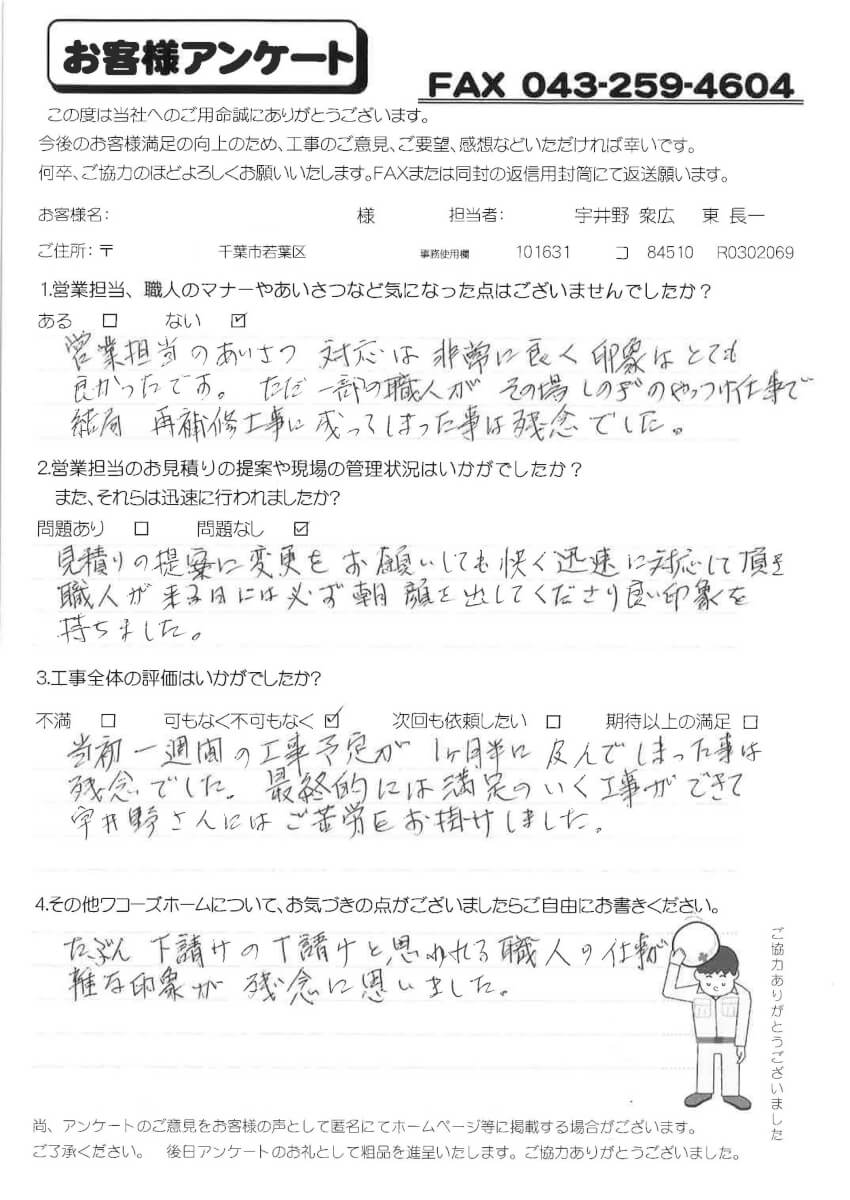 お客様アンケート
FAX 043-259-4604
この度は当社へのご用命誠にありがとうございます。
今後のお客様満足の向上のため、工事のご意見、ご要望、感想などいただければ幸いです。
何卒、ご協力のほどよろしくお願いいたします。FAXまたは同封の返信用封筒にて返送願います。
お客様名: 様 担当者: 宇井野 衆広 東 長一
ご住所:〒 千葉市若葉区 事務使用欄 101631 コ 84510 R0302069
1.営業担当、職人のマナーやあいさつなど気になった点はございませんでしたか?
ある □ ない ☑
営業担当のあいさつ 対応は 非常に良く 印象はとても
良かったです。ただ一部の職人が その場しのぎのやっつけ仕事で
結局 再補修工事に成ってしまった事は残念でした。
2.営業担当のお見積りの提案や現場の管理状況はいかがでしたか?
また、それらは迅速に行われましたか?
問題あり □ 問題なし ☑
見積りの提案に変更をお願いしても快く迅速に対応して頂き
職人が来る日には必ず朝 顔を出してくださり良い印象を
持ちました。
3.工事全体の評価はいかがでしたか?
不満 □ 可もなく不可もなく ☑ 次回も依頼したい □ 期待以上の満足 □
当初一週間の工事予定が 1ヶ月半に及んでしまった事は
残念でした。最終的には満足のいく工事ができて
宇井野さんにはご苦労をお掛けしました。
4.その他ワコーズホームについて、お気づきの点がございましたらご自由にお書きください。
たぶん 下請けの下請けと思われる職人の仕事が
雑な印象が 残念に思いました。
ご協力ありがとうございました
尚、アンケートのご意見をお客様の声として匿名にてホームページ等に掲載する場合がございます。
ご了承ください。 後日アンケートのお礼として粗品を進呈いたします。ご協力ありがとうございました。